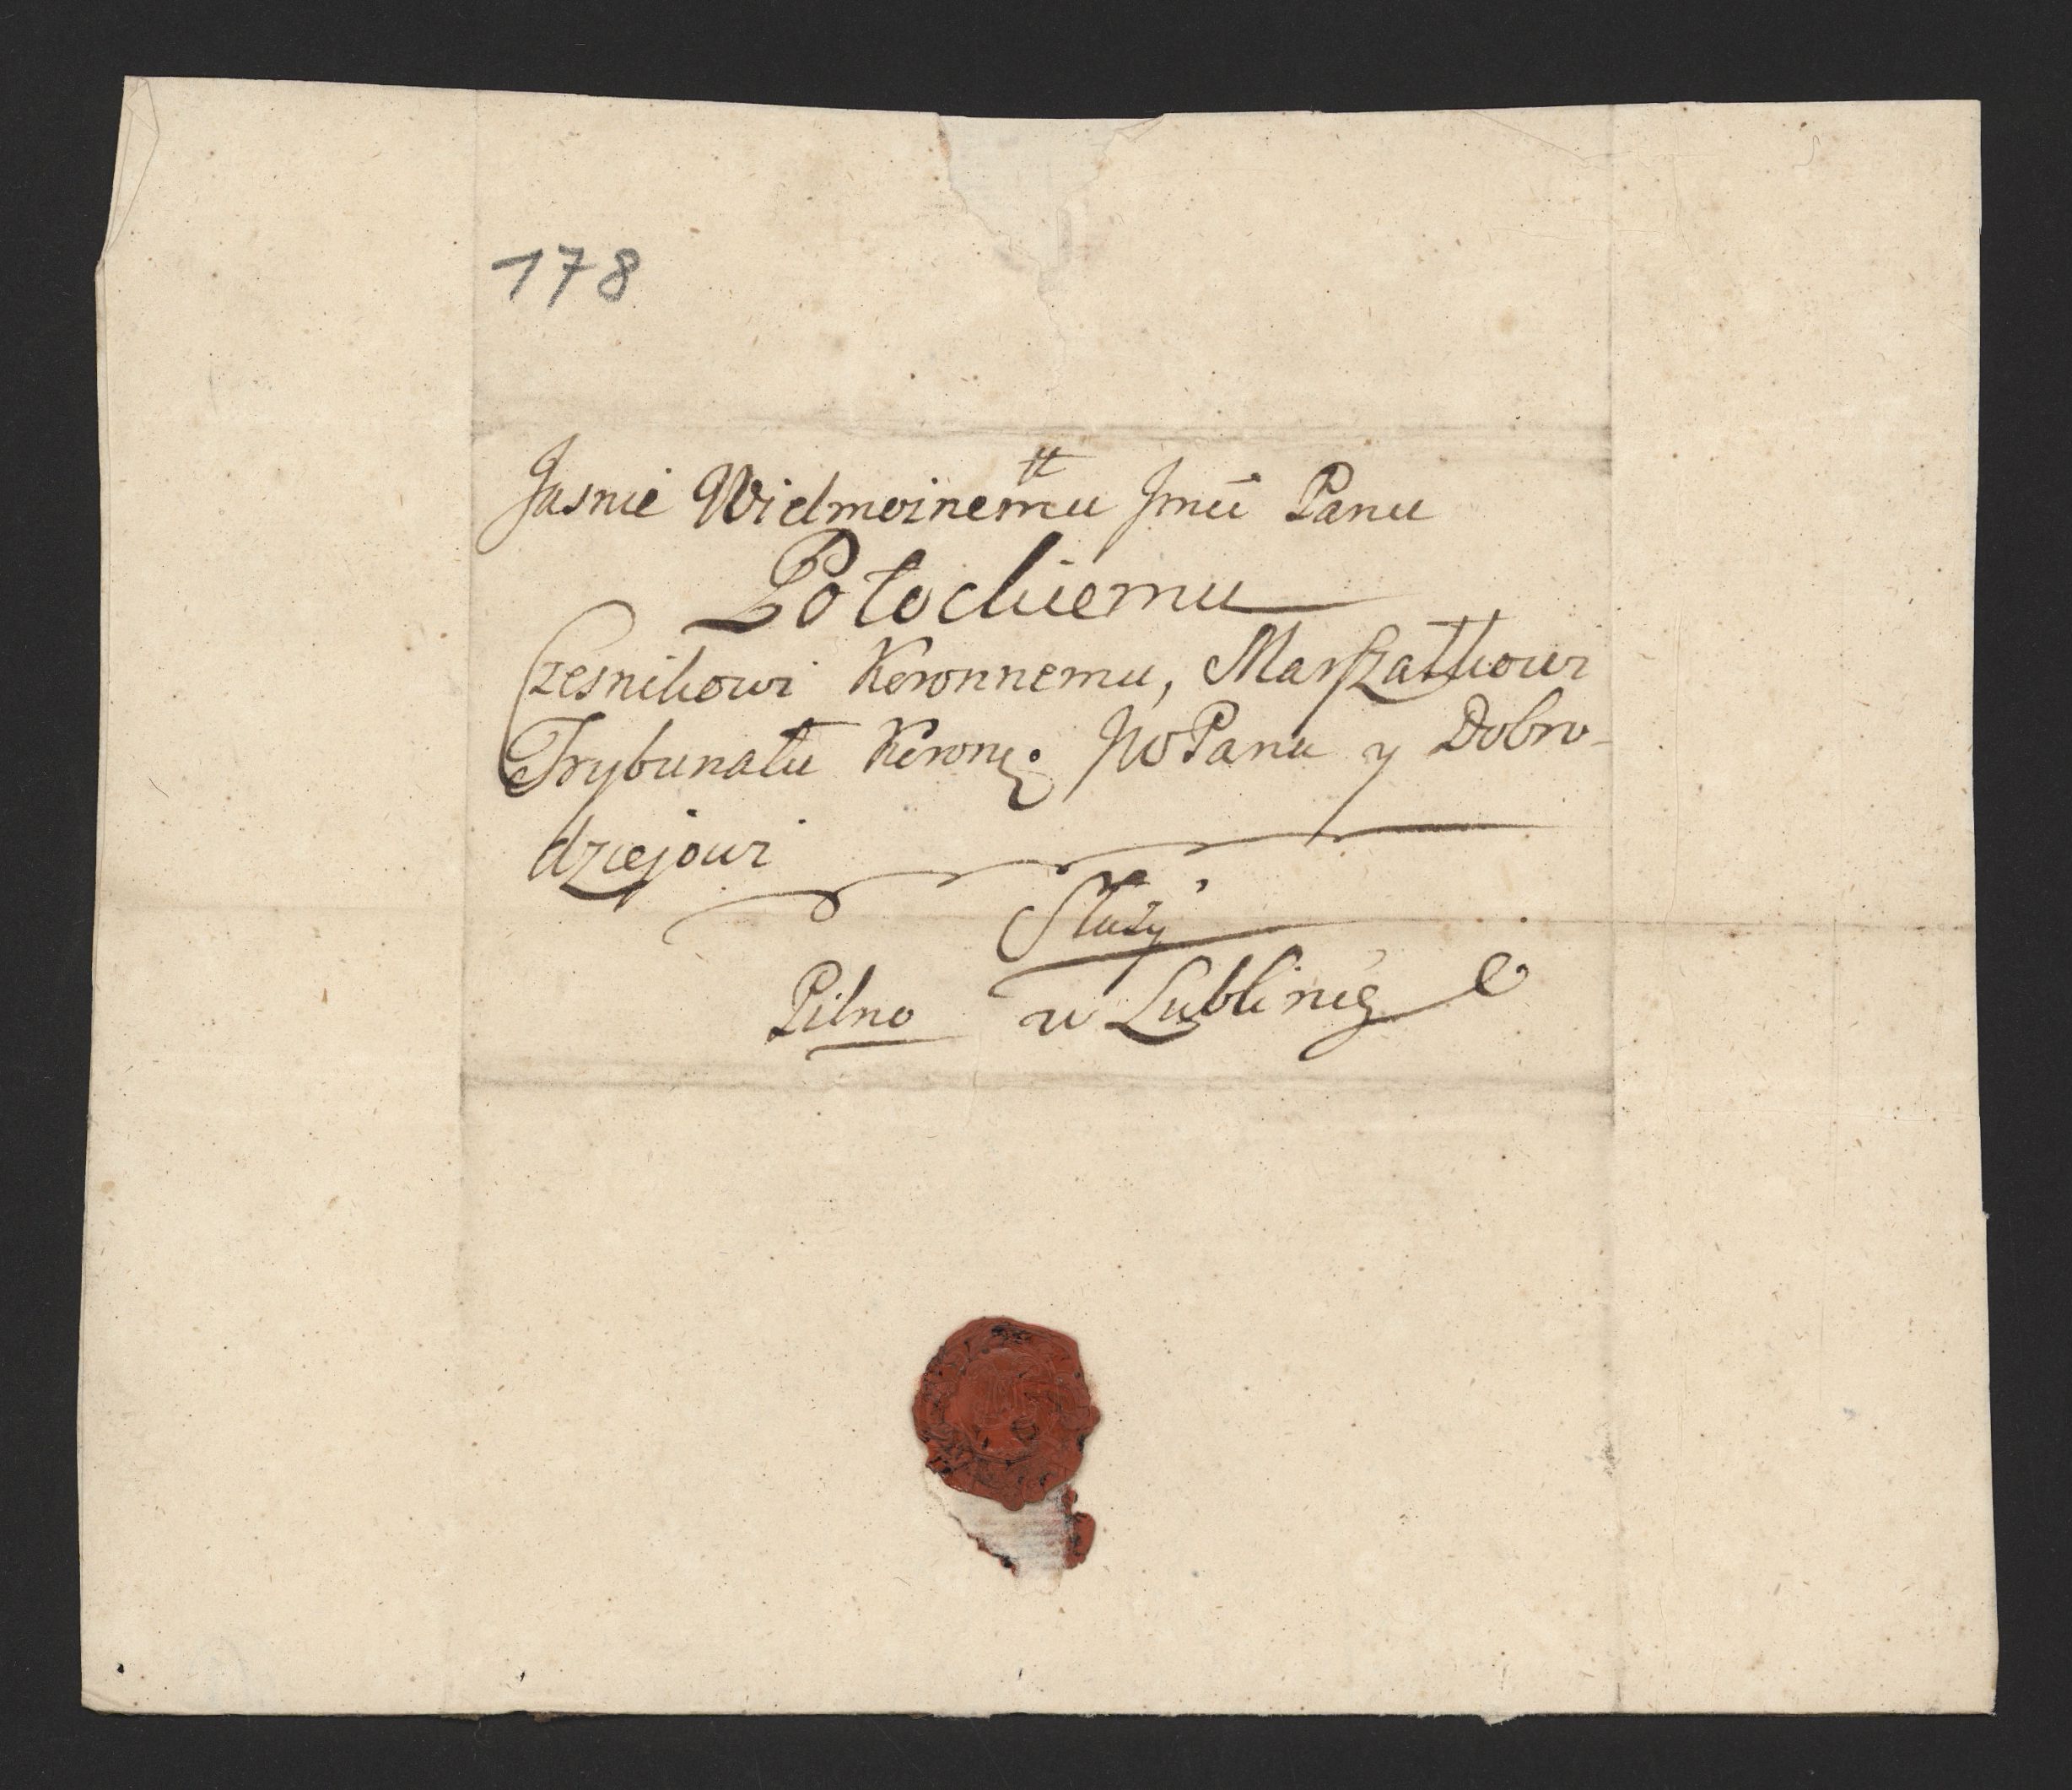 178
Jasnie Wielmoznemu Jmu Panu
Potockiemu
Czesnikowi Koronnemu, Marszałkowi
Trybunału Koronę: Panu y Dobro-
dziejowi
Służy
Pilno w Lublinię